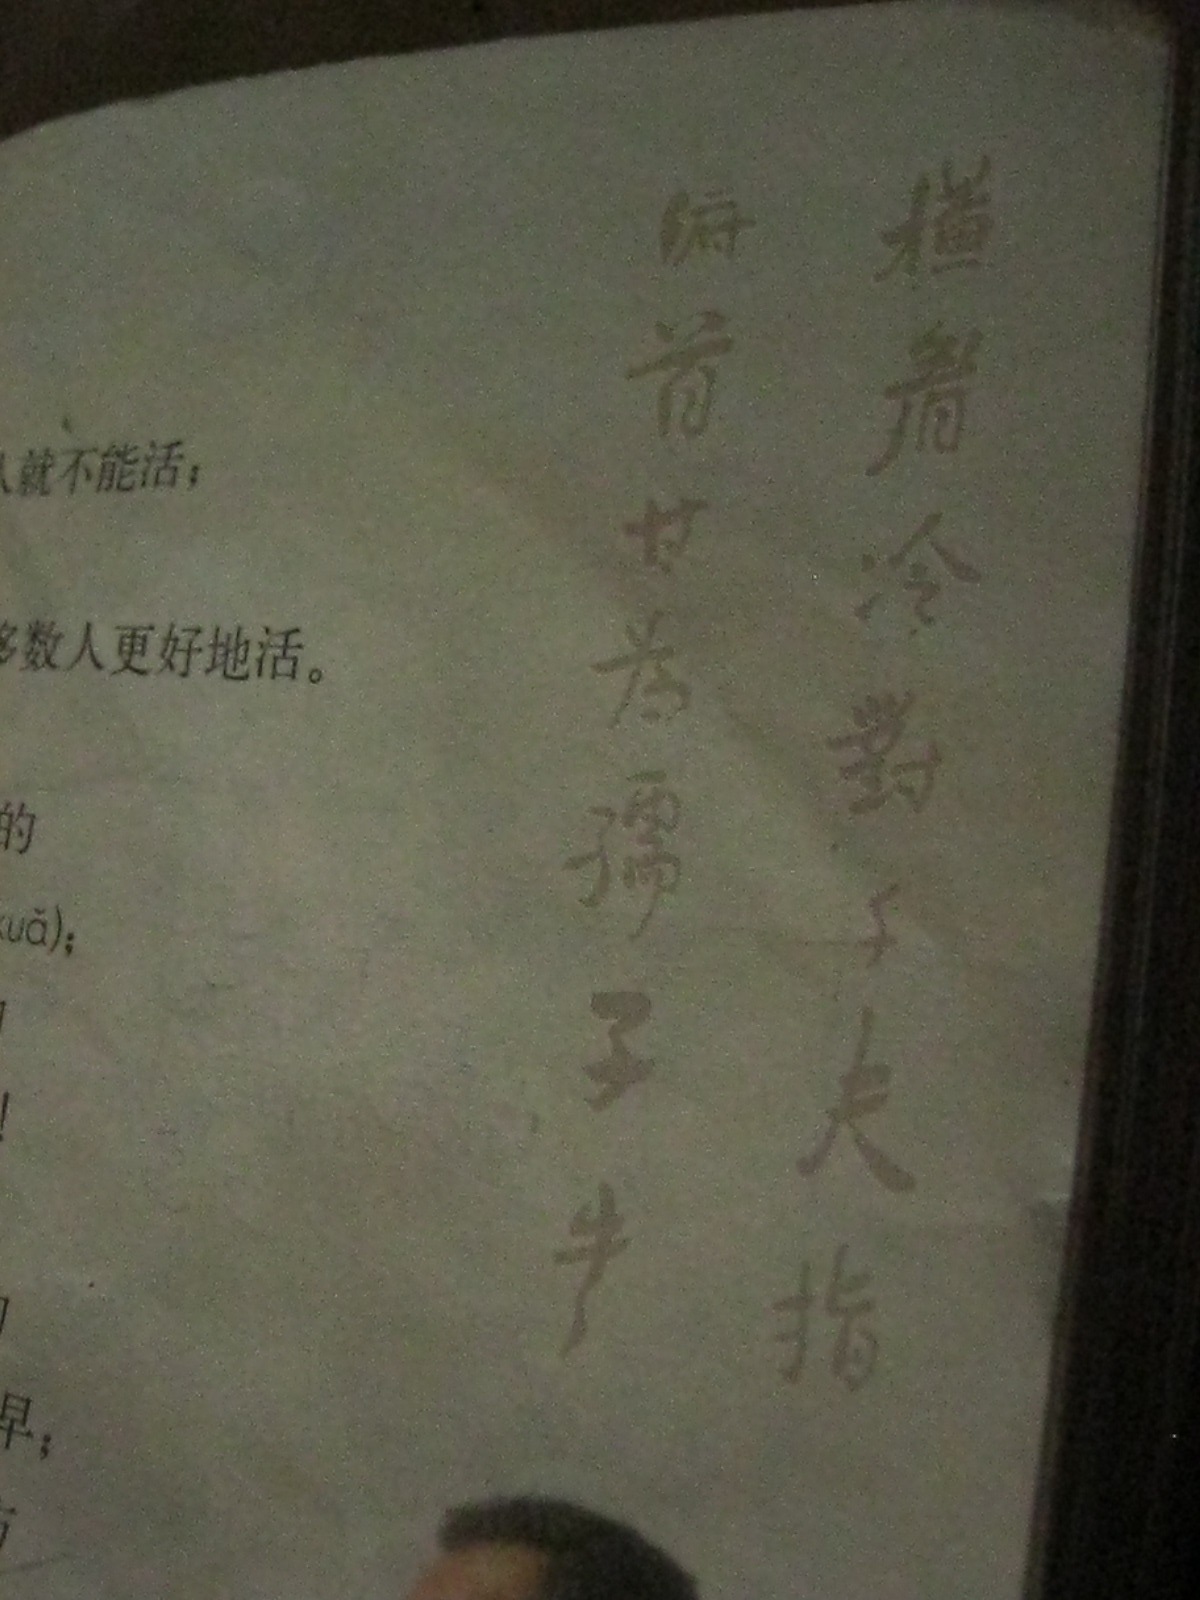 橫眉冷對千夫指
俯首甘為孺子牛
人就不能活；
多数人更好地活。
的
kuǎ)；
！
早；